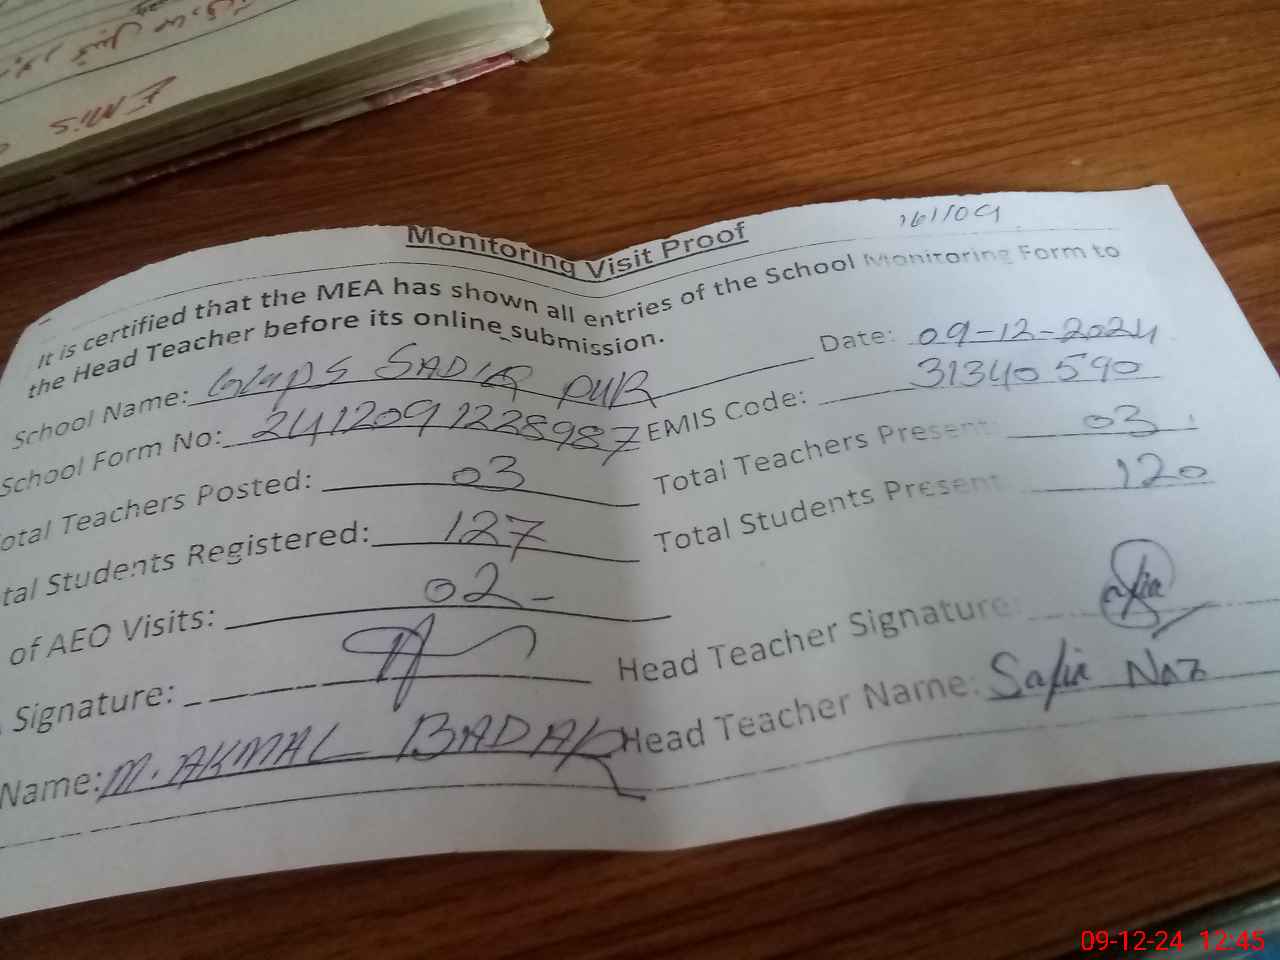 EMIS
161109
Monitoring Visit Proof
It is certified that the MEA has shown all entries of the School Monitoring Form to
the Head Teacher before its online submission.
School Name: GGPS SADIQ PUR Date: 09-12-2024
School Form No: 2412091228987 EMIS Code: 31340590
otal Teachers Posted: 03 Total Teachers Present: 03
tal Students Registered: 127 Total Students Present: 120
of AEO Visits: 02-
Signature: Head Teacher Signature: Safia
Name: M. AKMAL BADAR Head Teacher Name: Safia Naz
09-12-24 12:45